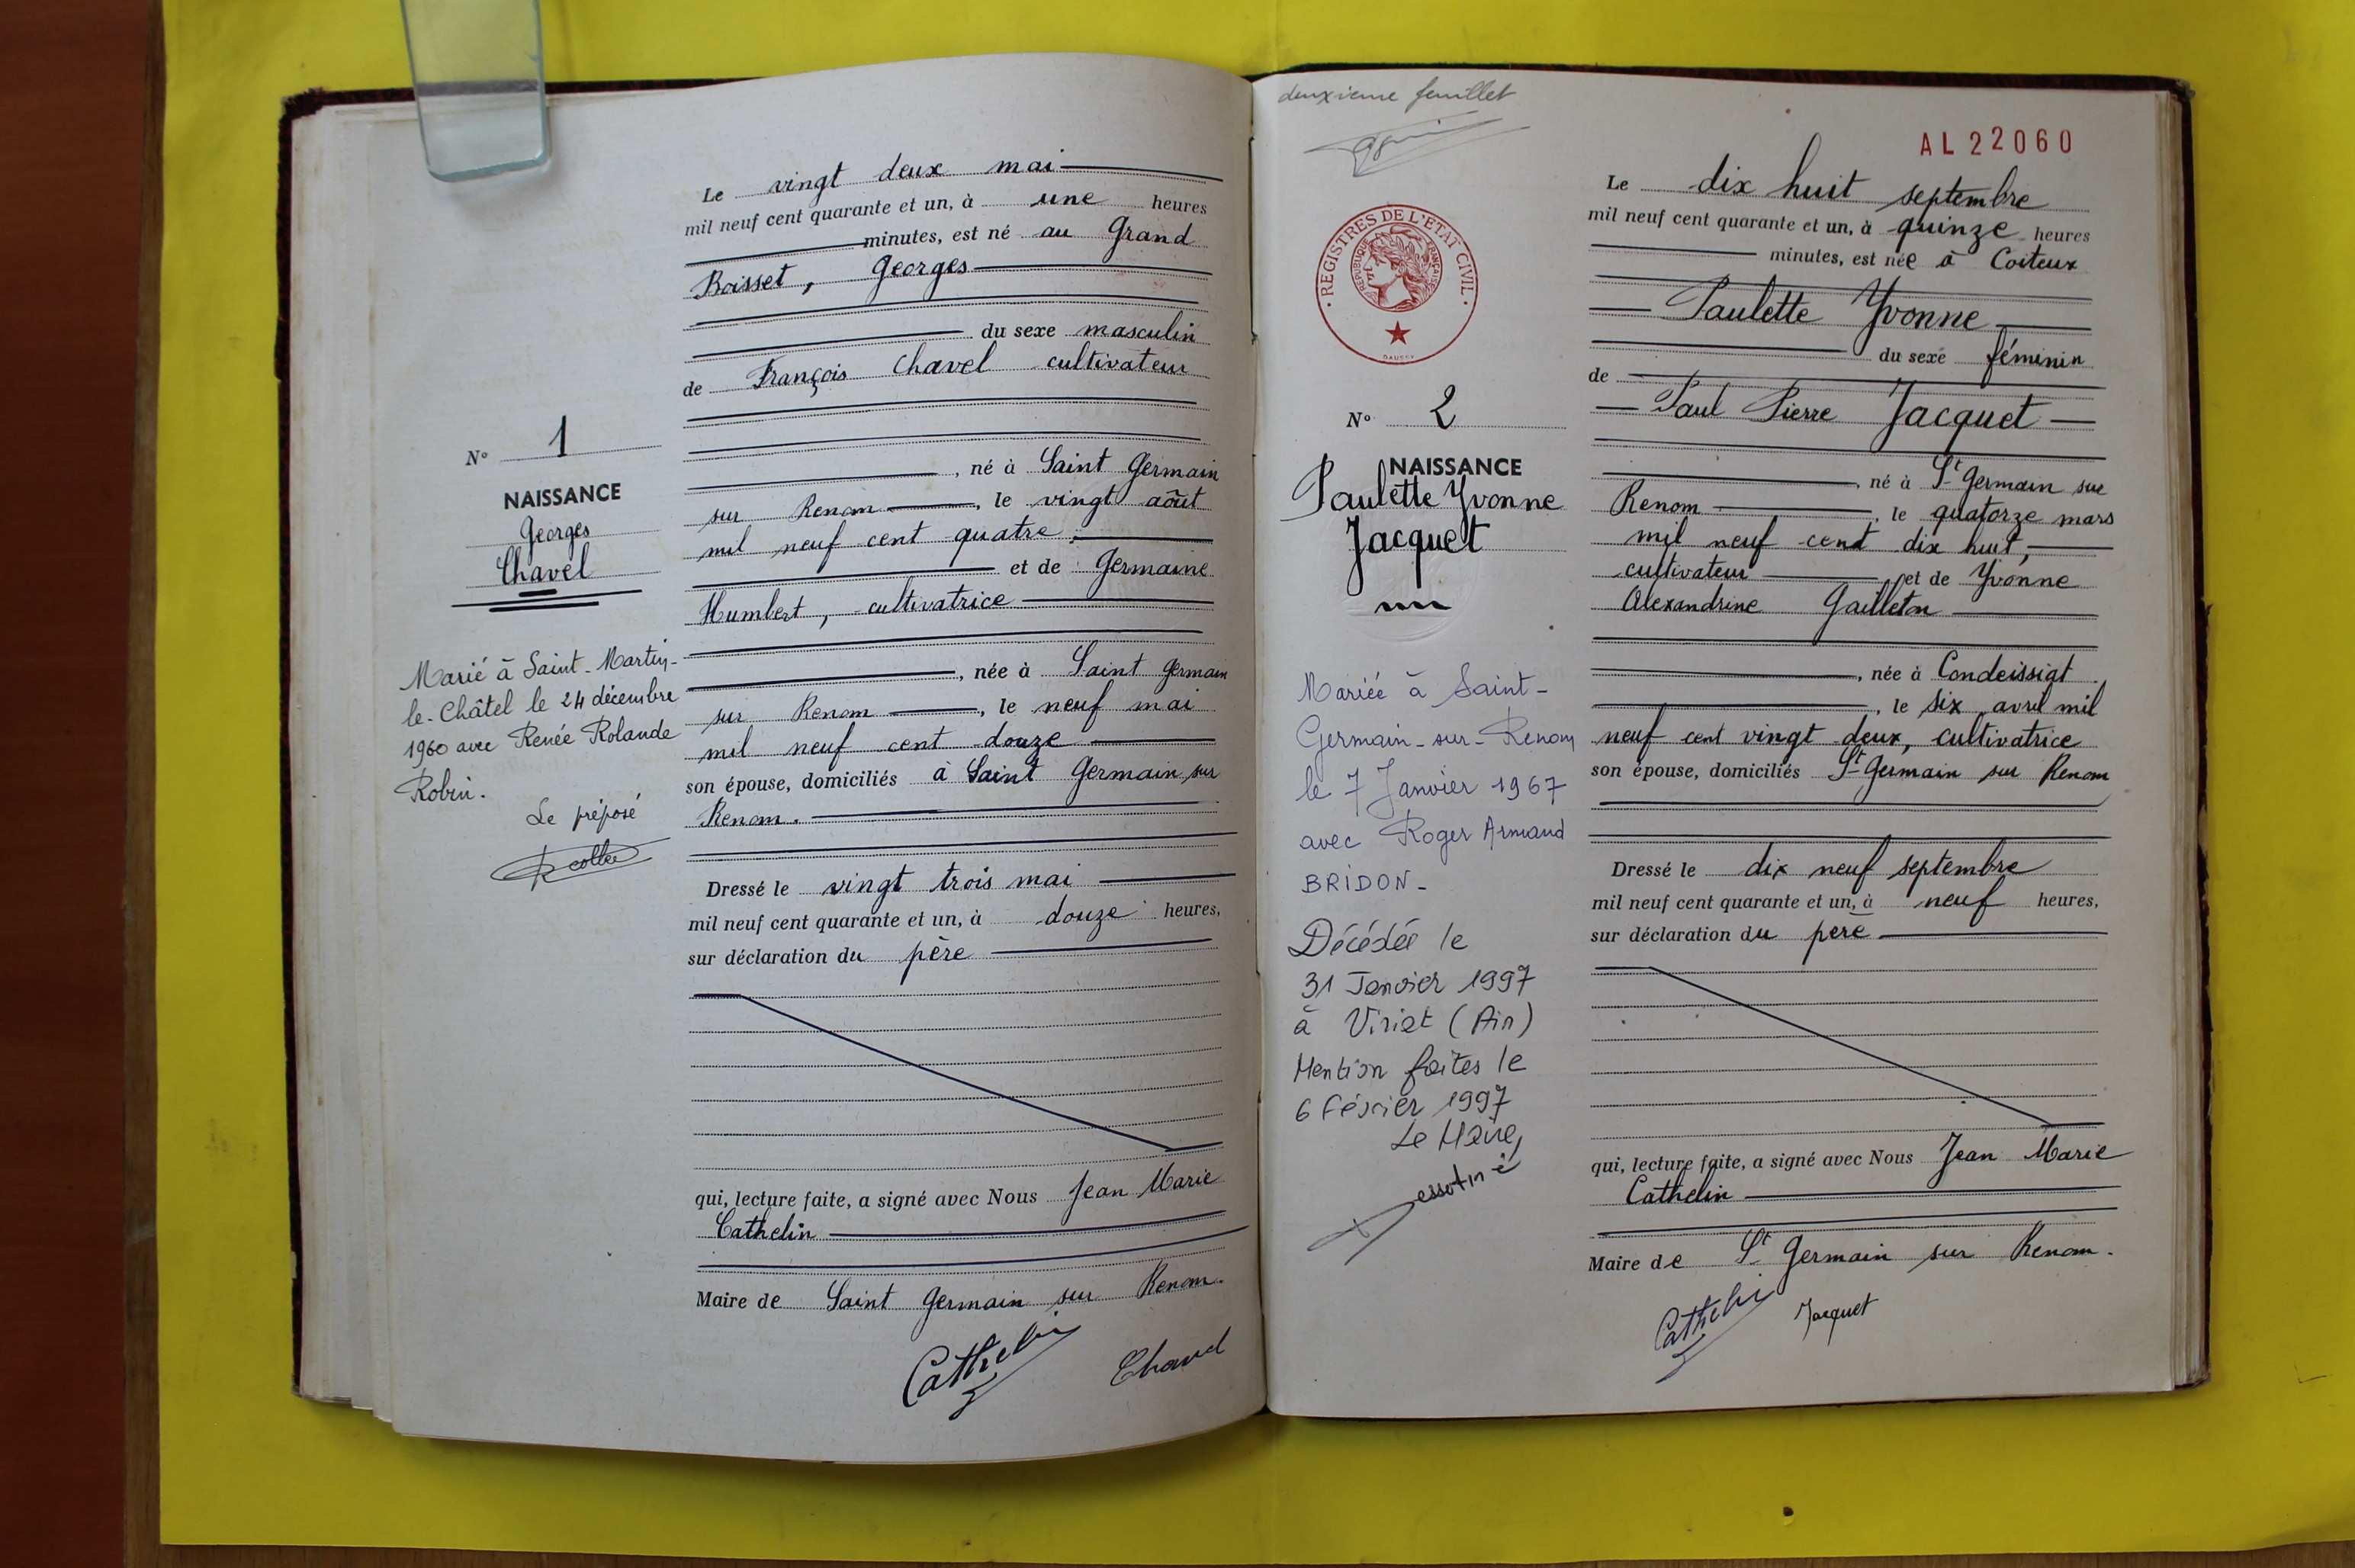 Le vingt deux mai
mil neuf cent quarante et un, à une heures
minutes, est né au Grand
Boisset, Georges
du sexe masculin
de François Chavel cultivateur
, né à Saint Germain
sur Renom, le vingt août
mil neuf cent quatre,
et de Germaine
Humbert, cultivatrice
, née à Saint Germain
sur Renom, le neuf mai
mil neuf cent douze
son épouse, domiciliés à Saint Germain sur
Renom.
Dressé le vingt trois mai
mil neuf cent quarante et un, à douze heures,
sur déclaration du père
qui, lecture faite, a signé avec Nous Jean Marie
Cathelin
Maire de Saint Germain sur Renom.
Cathelin Chavel
N° 1
NAISSANCE
Georges
Chavel
Marié à Saint-Martin-
le-Châtel le 24 décembre
1960 avec Renée Rolande
Robin.
Le préposé
deuxième feuillet
REGISTRES DE L'ETAT CIVIL
REPUBLIQUE FRANÇAISE
N° 2
NAISSANCE
Paulette Yvonne
Jacquet
Mariée à Saint-
Germain-sur-Renom
le 7 Janvier 1967
avec Roger Armand
BRIDON-
Décédée le
31 Janvier 1997
à Viriat (Ain)
Mention faites le
6 Février 1997
Le Maire,
AL22060
Le dix huit septembre
mil neuf cent quarante et un, à quinze heures
minutes, est née à Coiteux
Paulette Yvonne
du sexe féminin
de
Paul Pierre Jacquet
, né à St Germain sur
Renom, le quatorze mars
mil neuf cent dix huit,
cultivateur et de Yvonne
Alexandrine Gailleton
, née à Condeissiat
, le six avril mil
neuf cent vingt deux, cultivatrice
son épouse, domiciliés St Germain sur Renom
Dressé le dix neuf septembre
mil neuf cent quarante et un, à neuf heures,
sur déclaration du père
qui, lecture faite, a signé avec Nous Jean Marie
Cathelin
Maire de St Germain sur Renom.
Cathelin Jacquet